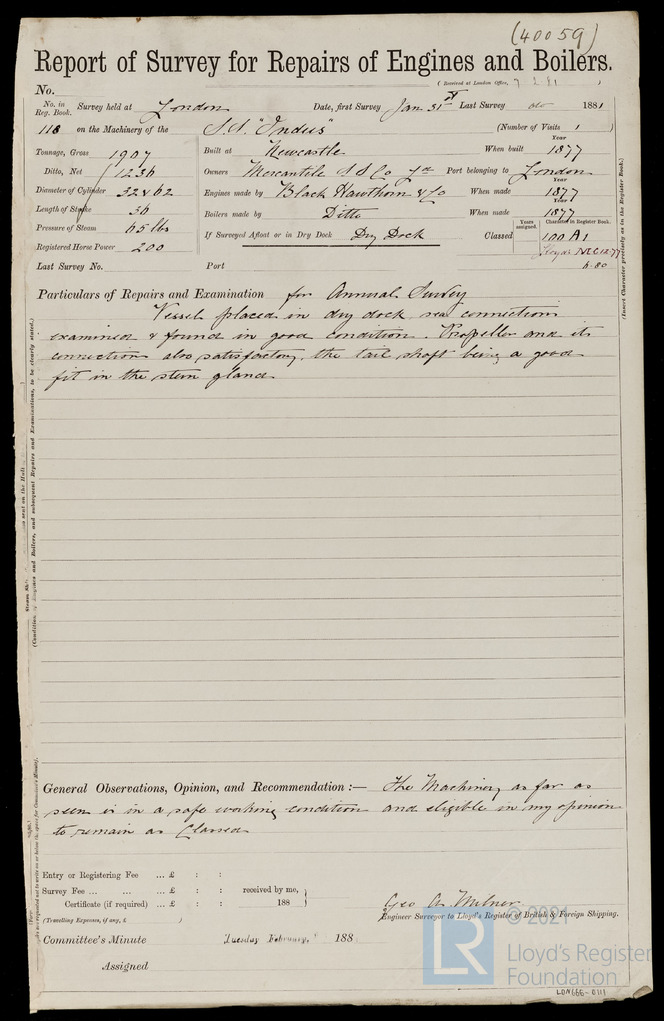 (40059)
Report of Survey for Repairs of Engines and Boilers.
(Received at London Office, 7 2 81 )
No.
No. in Reg. Book. Survey held at London Date, first Survey Jan 31st Last Survey do 1881
118 on the Machinery of the S.S. "Indus" (Number of Visits 1 )
Tonnage, Gross 1907 Built at Newcastle When built Year 1877
Ditto, Net 1236 Owners Mercantile S S Co Ld Port belonging to London
Diameter of Cylinder 32 & 62 Engines made by Black Hawthorn & Co When made Year 1877
Length of Stroke 36 Boilers made by Ditto When made Year 1877
Pressure of Steam 65 lbs If Surveyed Afloat or in Dry Dock Dry Dock Classed Years assigned. Character in Register Book. 100 A1
Registered Horse Power 200 Lloyds M C 12.77
Last Survey No. Port 6.80
Particulars of Repairs and Examination for Annual Survey
Vessel placed in dry dock sea connections
examined & found in good condition. Propeller and its
connections also satisfactory, the tail shaft being a good
fit in the stern gland
General Observations, Opinion, and Recommendation :— The Machinery as far as
seen is in a safe working condition and eligible in my opinion
to remain as Classed
Entry or Registering Fee ... £ : :
Survey Fee ... ... ... £ : : received by me,
Certificate (if required) ... £ : : 188
(Travelling Expenses, if any, £ )
Geo A. Milner
Engineer Surveyor to Lloyd's Register of British & Foreign Shipping.
Committee's Minute Tuesday February, 188
Assigned
(Insert Character precisely as in the Register Book.)
(Condition of Engines and Boilers, and subsequent Repairs and Examinations, to be clearly stated.)
© 2021
LR
Lloyd's Register
Foundation
LDN666-0111